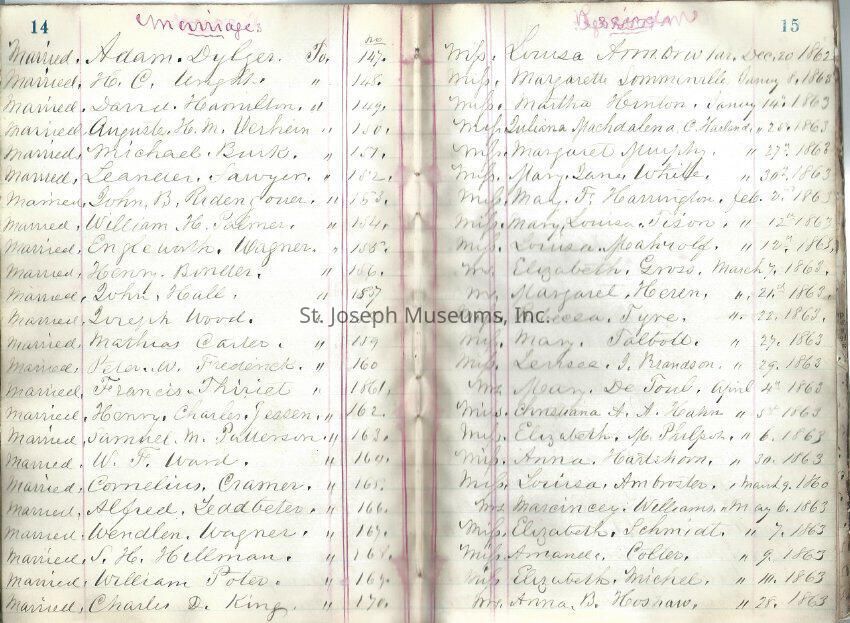 14 Marriages
15
Married, Adam Dylger. To. no. 147. Miss. Louisa Dec. 20 1862
Married, H. C. Wright. " 148. Miss. Margarette 8. 1863
Married, Hamilton. " 149. Miss. Martha Hinton. 14th 1863
Married, August. H. M. " 150. Miss. Juliana Machdalena C. " 1863
Married, Michael Burk. " 151. Miss. Margaret Murphy. " 27th 1863
Married, Leander Sawyer. " 152. Miss. Mary Jane White. " 30th 1863
Married, John, B, Ridenouer. " 153. Miss. May. F. Harrington, Feb. 1863
Married, William H. Palmer. " 154. Miss. Mary Louisa Tison. " 12th 1863
Married, Wagner. " 155. Miss. Louisa " 12th 1863,
Married, Henry Binder. " 156. Elizabeth, Gross. March 7, 1863.
Married, John, Hall. " 157 Margaret, Heren. " 1863.
Married, Joseph Wood. St. Joseph Museums, Inc. Tyre. " 22. 1863.
Married, Mathias Carter. " 159 Miss. Mary, Talbott. " 27. 1863
Married, Peter. W. Frederick. " 160 Miss. J, Brandson. " 29. 1863
Married, Francis Thiriet " 1861, Mary De April 4th 1863
Married, Henry, Charles, Jessen. " 162. Miss. A. A. Hahn " 1863
Married, Samuel. M. Patterson. " 163. Miss. Elizabeth. M. " 6. 1863
Married, W. F. Ward. " 164. Miss. Anna, Hartshorn. " 30. 1863
Married, Cornelius, Cramer. " 165. Miss. Louisa, Ambroster. " March 9. 1860
Married, Alfred, Leddbeter. " 166. Mrs Williams, " May 6. 1863
Married, Wendlen, Wagner. " 167. Miss. Elizabeth, Schmidt. " 7. 1863
Married, S. H. Hillman. " 168. Miss. Amanda. " 9. 1863
Married, William Poter. " 169. Miss Elizabeth. Michel. " 1863
Married, Charles D. King, " 170. Anna, B. " 28. 1863